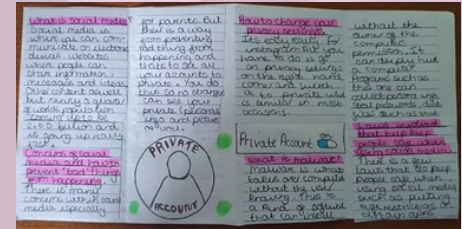 What is social media
Social media is
where you can com-
municate or electronic
devices, websites
where people can
share information,
messages and ideas
Other content as well
but nearly a quarter
of worlds population
coming up to be
billion and
is going up really
fast.
Concerns of social
media and how to
prevent "bad" things
from happening
There is many
concerns within social
media especially
for parents. But
there is a way
from preventing
bad thing from
happening and
thats to set all
your accounts to
private. You do
this so no strangers
can see your
private / personal
info and photos
PRIVATE
ACCOUNT
How to change your
privacy settings
Its very easy. For
instagram All you
have to do is go
on privacy settings
on the right hand
corner and switch
it to private which
is similar in most
Private Account
What is malware?
Malware is what
takes over computer
without the user
knowing. This is
a kind of
that can
without the
owner of the
computer
permission. It
can deeply hurt
a computer.
such as
this one can
such as that
that help keep
people safe when
using social media
There is a few
laws that do keep
people safe when
using social media
such as putting
age restrictions on
certain apps.